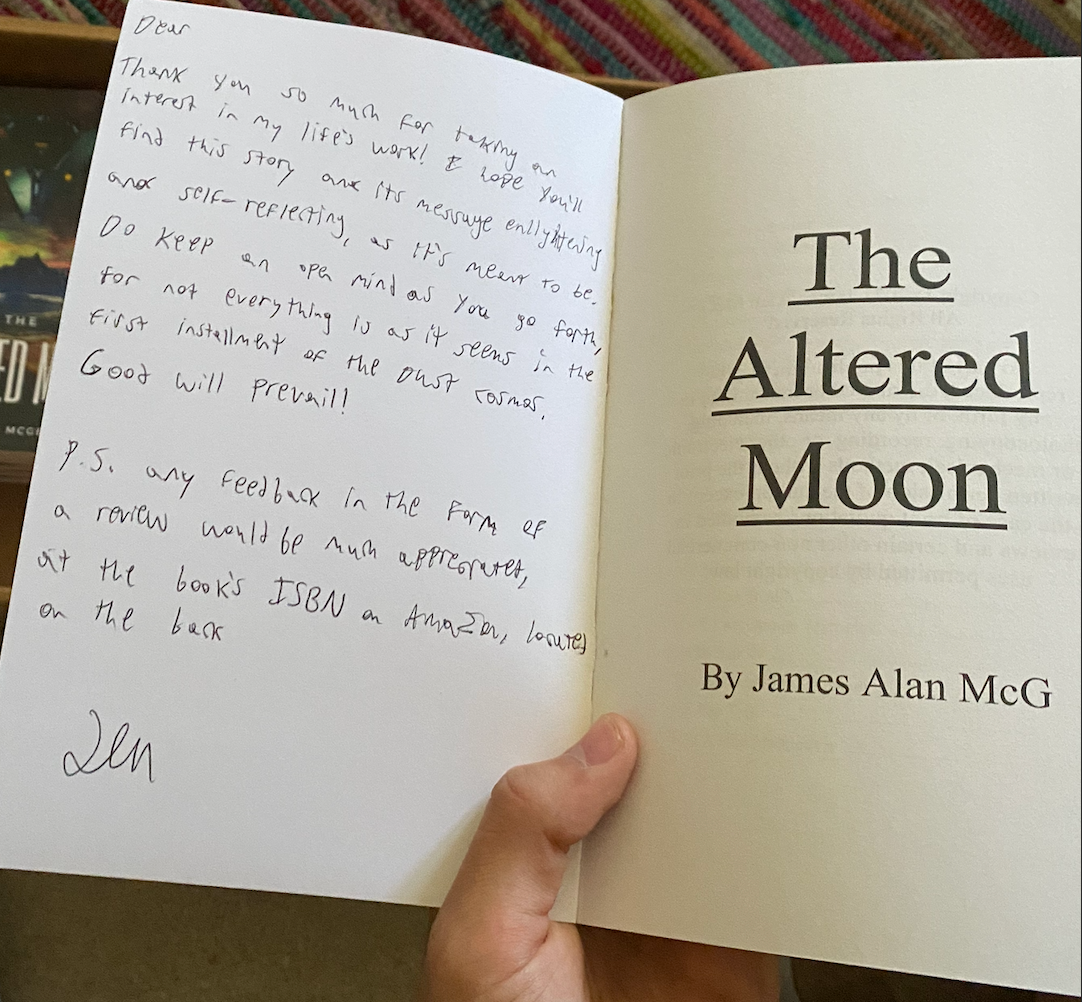 Dear
Thank you so much for taking an
interest in my life's work! I hope you'll
find this story and its message enlightening
and self-reflecting, as it's meant to be.
Do keep an open mind as you go forth,
for not everything is as it seens in the
first installment of the Dust cosmos.
Good will prevail!
P.S. any feedback in the form of
a review would be much appreciated,
at the book's ISBN on Amazon, located
on the back
The
Altered
Moon
By James Alan McG
THE
ED M
MCG